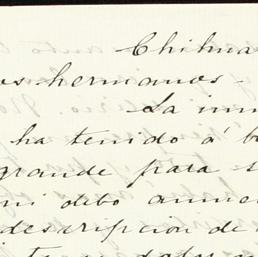 Chihua
os hermanos.
La inm
ha tenido á b
grande para s
mi debo anunc
descripcion de